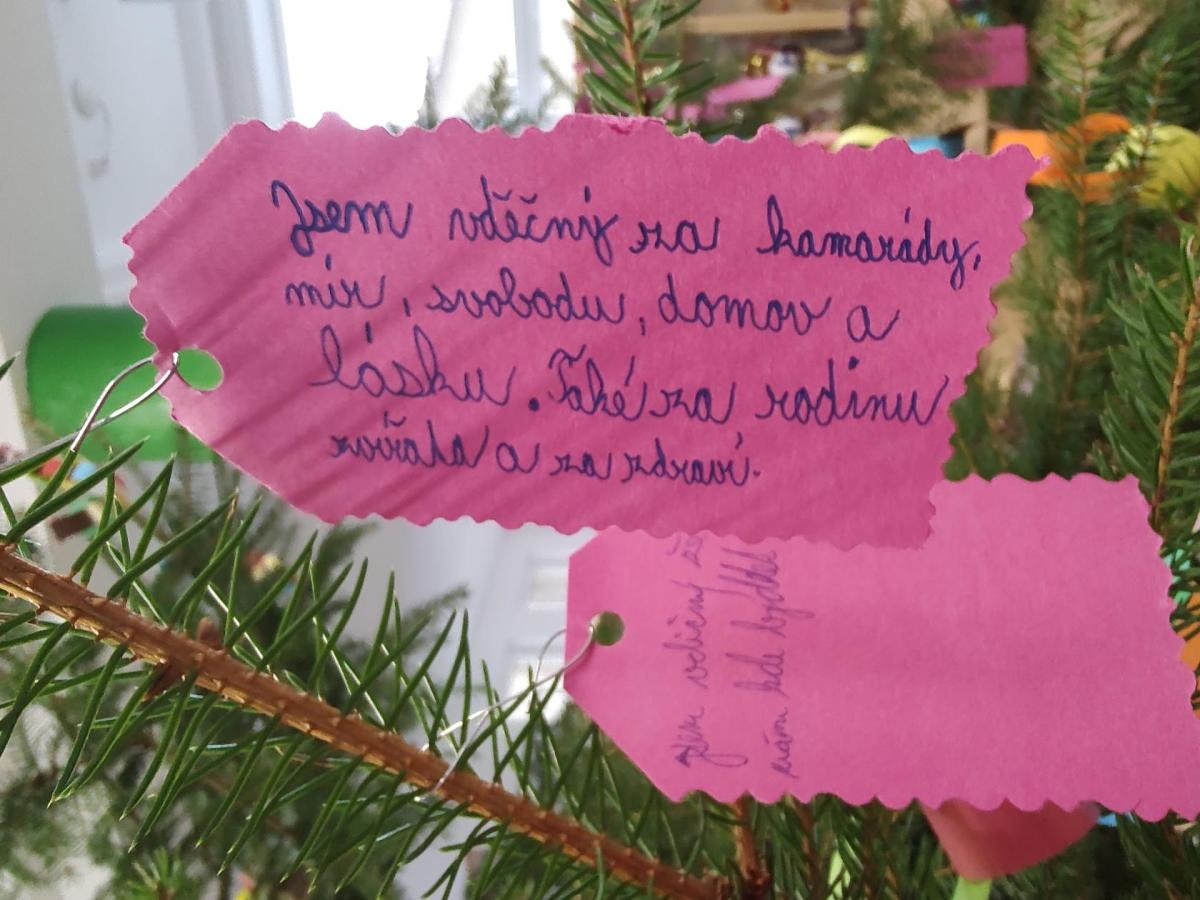 Jsem vděčný za kamarády,
mír, svobodu, domov a
lásku. Také za rodinu
zvířata a za zdraví.
Jsem vděčný
mám kde bydlet